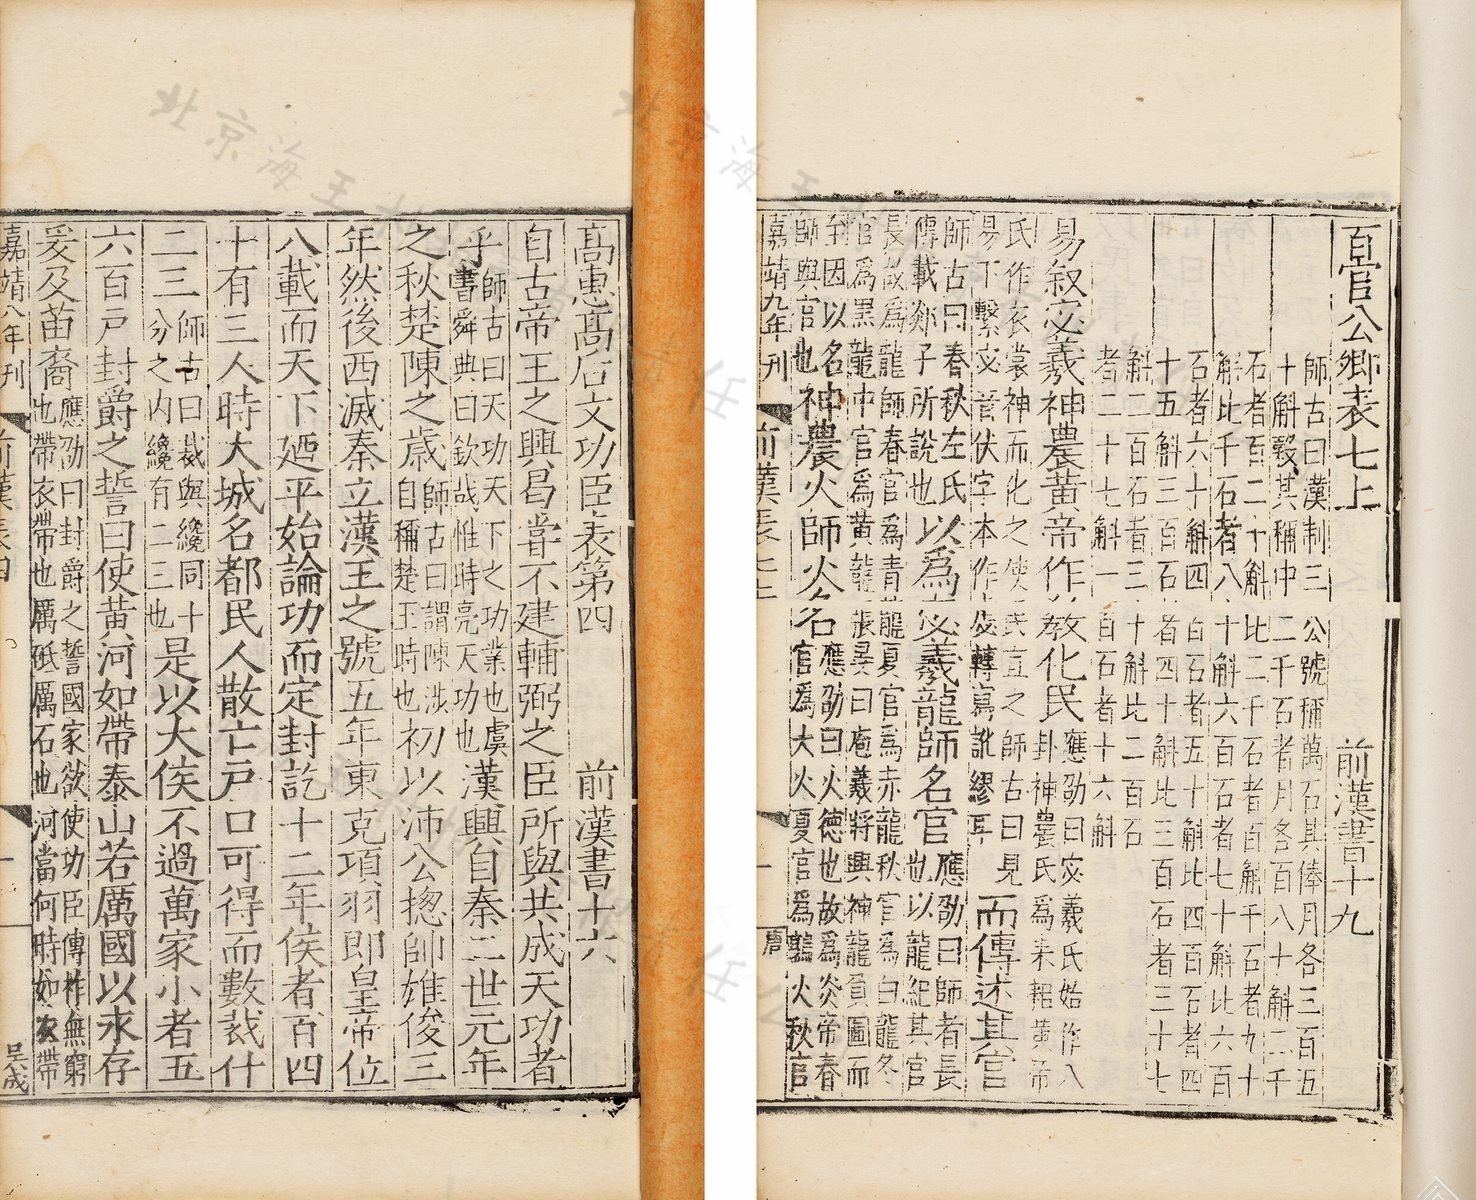 百官公卿表七上　前漢書十九
師古曰漢制三公號稱萬石其俸月各三百五
十斛穀其稱中二千石者月各百八十斛二千
石者百二十斛比二千石者百斛千石者九十
斛比千石者八十斛六百石者七十斛比六百
石者六十斛四百石者五十斛比四百石者四
十五斛三百石者四十斛比三百石者三十七
斛二百石者三十斛比二百石
者二十七斛一百石者十六斛
易叙宓羲神農黃帝作教化民應劭曰宓羲氏始作八卦神農氏爲耒耜黃帝
氏作衣裳神而化之使民宜之師古曰見易下繫宓音伏字本作虙轉寫訛謬耳而傳述其官
師古曰春秋左氏傳載郯子所說也以爲宓羲龍師名官應劭曰師者長也以龍紀其官
長故爲龍師春官爲青龍夏官爲赤龍秋官爲白龍冬官爲黑龍中官爲黃龍張晏曰庖羲將興神龍負圖而
至因以名師與官也神農火師火名應劭曰火德也故爲炎帝春官爲大火夏官爲鶉火秋官
嘉靖九年刊　前漢表七上　一　唐
高惠高后文功臣表第四　前漢書十六
自古帝王之興曷嘗不建輔弼之臣所與共成天功者
乎師古曰天功天下之功業也虞書舜典曰欽哉惟時亮天功也漢興自秦二世元年
之秋楚陳之歲師古曰謂陳涉自稱楚王時也初以沛公揔帥雄俊三
年然後西滅秦立漢王之號五年東克項羽即皇帝位
八載而天下迺平始論功而定封訖十二年侯者百四
十有三人時大城名都民人散亡戶口可得而數裁什
二三師古曰裁與纔同十分之內纔有二三也是以大侯不過萬家小者五
六百戶封爵之誓曰使黃河如帶泰山若厲國以永存
爰及苗裔應劭曰封爵之誓國家欲使功臣傳祚無窮也帶衣帶也厲砥厲石也河當何時如衣帶
嘉靖八年刊　前漢表四　一　吳成
北京海王